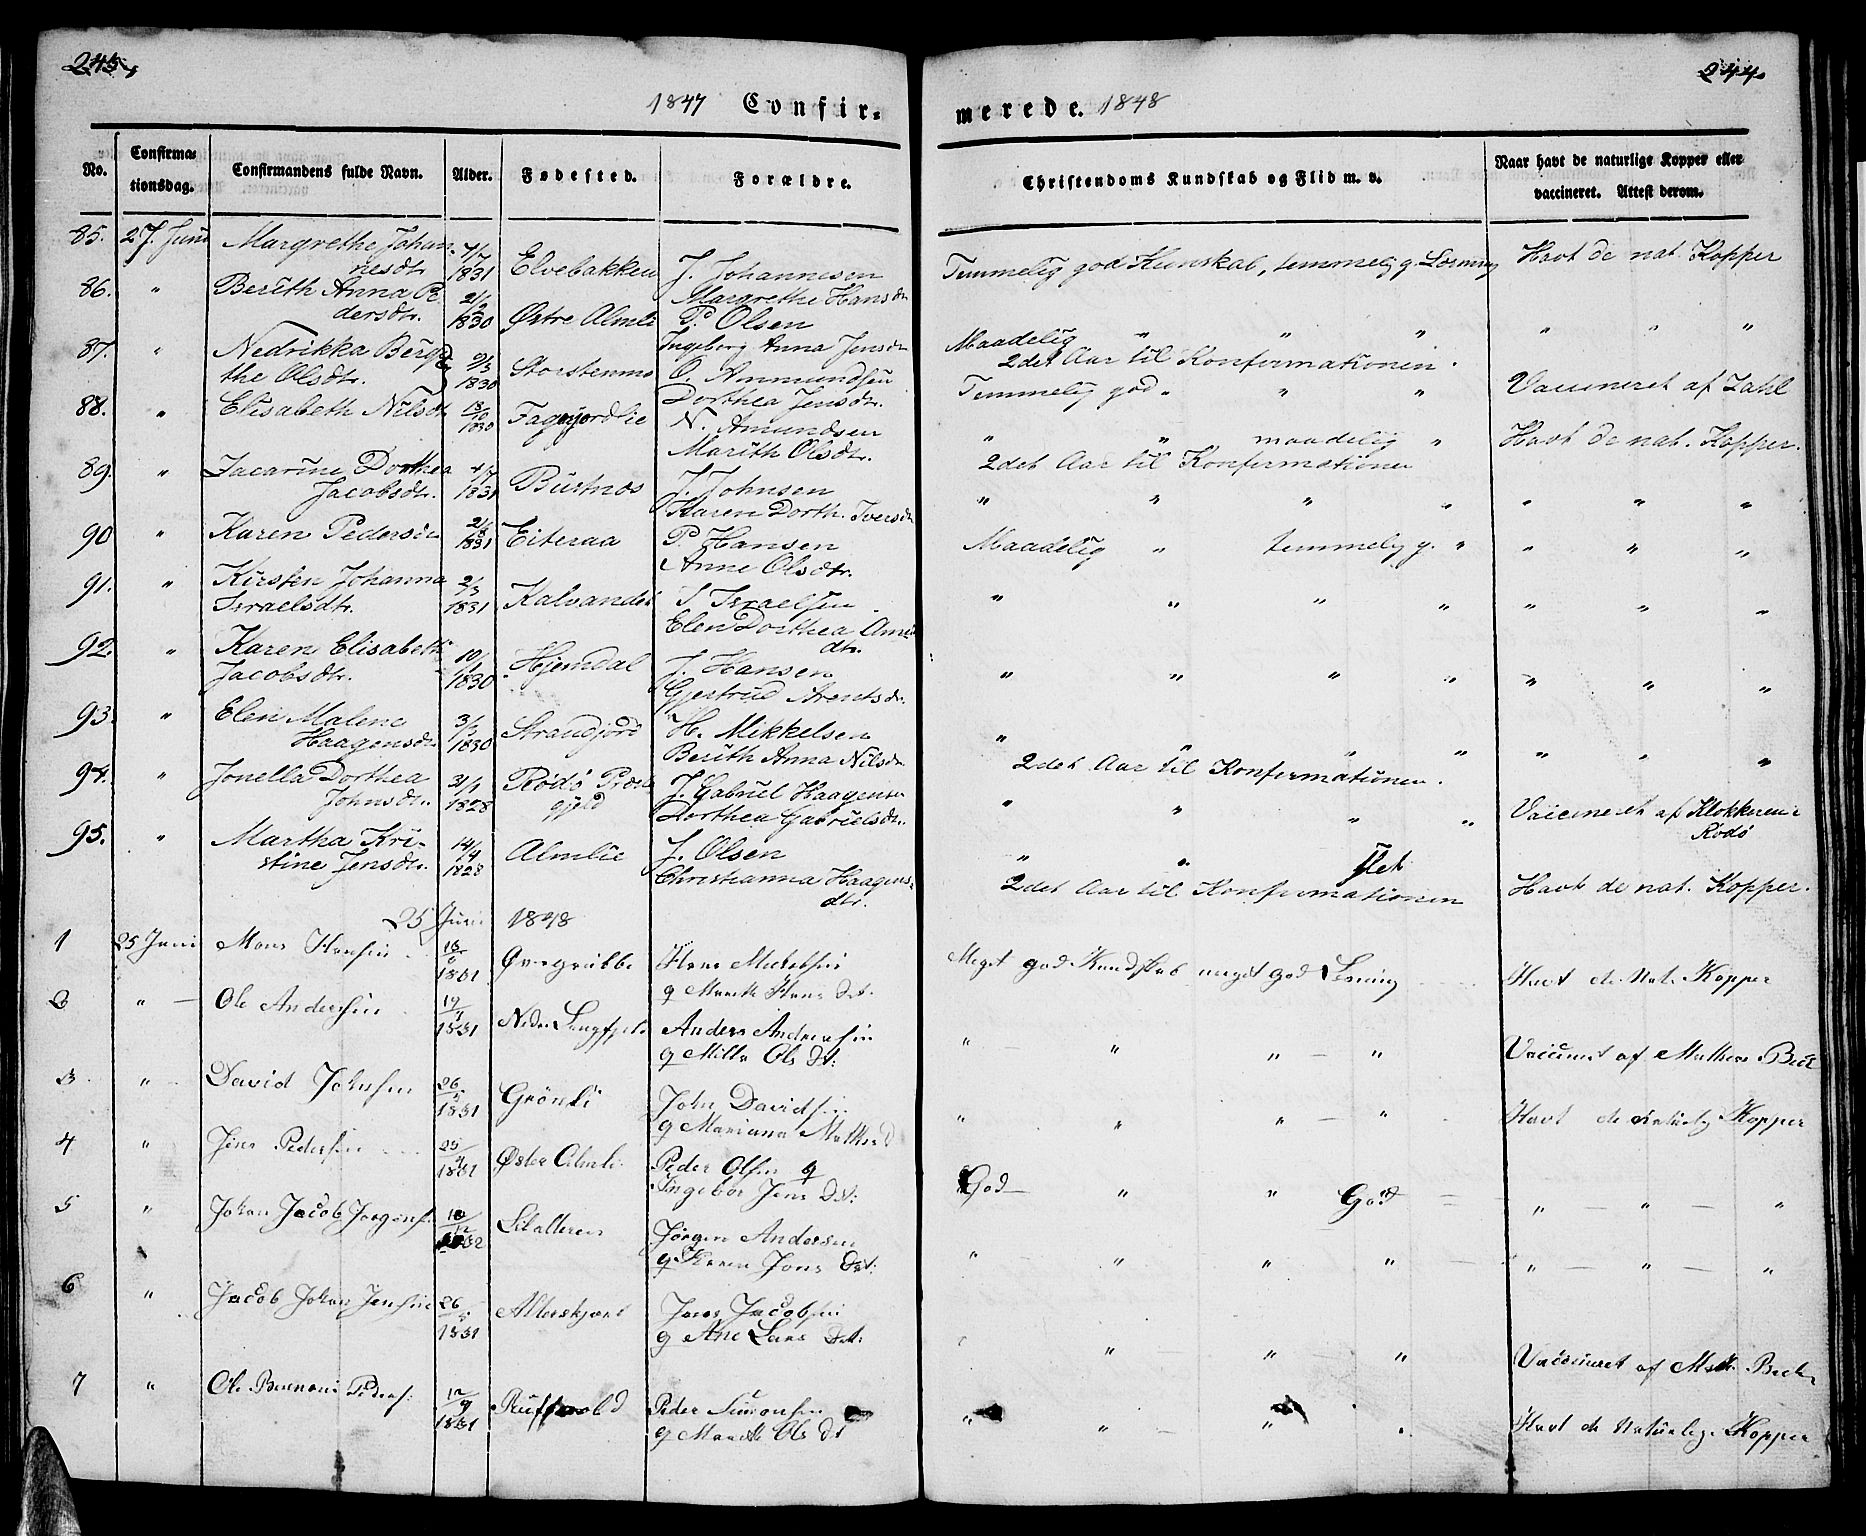 243,
244.
1847 Confir-
merede. 1848
No.
Confirma-
tionsdag.
Confirmandens fulde Navn.
Alder.
Fødested.
Forældre.
Christendoms Kundskab og Flid m. v.
Naar havt de naturlige Kopper eller
vaccineret. Attest derom.
85. 27. Juni Margrethe Johan-
nesdtr. 4/7 1831 Elvebakken J. Johannesen
Margrethe Hansdtr
Temmelig god Kunskab, temmelig g. Læsning Havt de nat. Kopper
86. " Berith Anna Pe
dersdtr. 21/2 1830 Østre Almli P. Olsen
Ingeborg Anna Jensdtr
" " " " " "
87. " Nedrikka Bergit
the Olsdtr. 9/5 1830 Storstenmo O. Ammundsen
Dorthea Jensdtr.
Maadelig
2det Aar til Konfermationen.
Temmelig god " " " Vaccineret af Zahl
88. " Elisabeth Nilsdt 13/10 1830 Fagerjordlie N. Amundsen
Marith Olsdtr.
" " maadelig " Havt de nat. Kopper.
2det Aar til Konfermationen
89. " Zacarine Dorthea
Jacobsdtr. 4/7 1831 Bustnes J. Johnsen
Karen Dorth. Iversdtr
" " " " " " "
90 " Karen Pedersdtr 21/8 1831 Eiteraa P. Hansen
Anne Olsdtr.
Maadelig " temmelig g. " " " "
91. " Kirsten Johanna
Israelsdtr. 2/3 1831 Kalvandet I Israelsen
Elen Dorthea
dtr.
" " " " " " "
92. " Karen Elisabeth
Jacobsdtr. 10/1 1830 Hjemdal J. Hansen
Gjertrud Arentsdr.
" " " " " " "
93. " Elen Malene
Haagensdtr 3/5 1830 Strandjord H. Mikkelsen
Berith Anna Nilsdtr
" " " " " " "
2det Aar til Konfermationen.
94. " Jonella Dorthea
Johnsdtr. 31/1 1828 Rødø Præste
gjeld J. Gabriel Haagensen
Dorthea Gabrielsdtr.
" " " " Vaccineret af Klokkeren i
Rødø
95. " Martha Kri-
stine Jensdtr. 14/4 1828 Almlie J. Olsen
Christianna Haagens-
dtr.
" " slet
2det Aar til Konfermationen Havt de nat. Kopper.
25 Juni 1848
1 25 Juni Mons Hansen 1831 Øvregrubbe Hans Mikkelsen
g Marith Hans Dat.
Meget god Kundskab meget god Læsning Havt de Nat. Kopper
2 " Ole Andersen 19/4 1831 Nedre Langfjeld Anders Andersen
g Mille Ols Dt:
" " " " Vaccineret af Mathias Beck
3 " David Johnsen 26/5 1831 Grönli John Davidsen
g Mariana Mathisd
" " " " Havt de naturlig Kopper
4 " Jens Pedersen 25/4 1831 Øster Almli Peder Olsen g
Ingebor Jens Dt:
God " " God " " "
5 " Johan Jacob Jørgens. 18/12 1832 Skatteren Jørgen Andersen
g Karen Jons Dat:
" " " " " " "
6 " Jacob Johan Jensen 26/5 1831 Alterskjæret Jens Jacobsen
g Ane Lars Dt:
" " " Vaccineret af Math. Beck
7 " Ole Bernoni Peders: 12/9 1831 Rufsvold Peder Simonsen
g Marith Ols Dt
" " " Havt de Naturlige Kopper